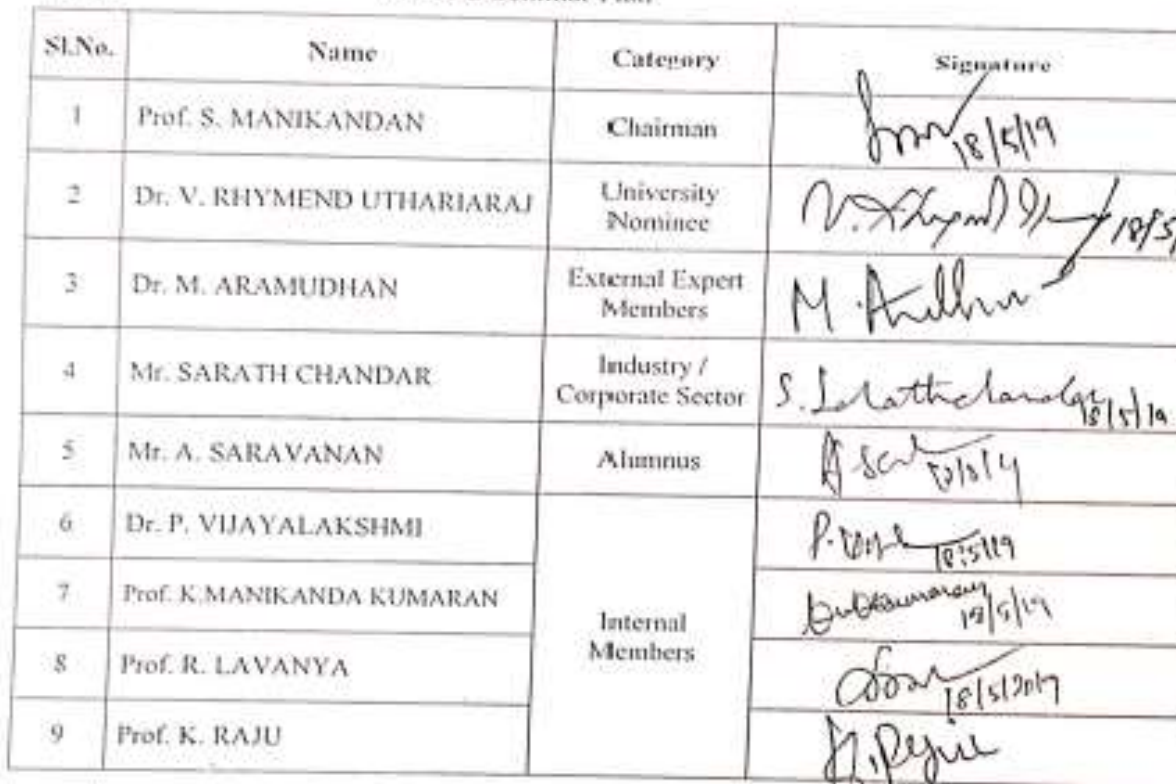 Sl.No. Name Category Signature
1 Prof. S. MANIKANDAN Chairman 18/5/19
2 Dr. V. RHYMEND UTHARIARAJ University Nominee V. 18/5
3 Dr. M. ARAMUDHAN External Expert Members M.
4 Mr. SARATH CHANDAR Industry / Corporate Sector S. 18/5/19
5 Mr. A. SARAVANAN Alumnus
6 Dr. P. VIJAYALAKSHMI P. 18/5/19
7 Prof. K.MANIKANDA KUMARAN Internal Members 18/5/19
8 Prof. R. LAVANYA 18/5/2019
9 Prof. K. RAJU